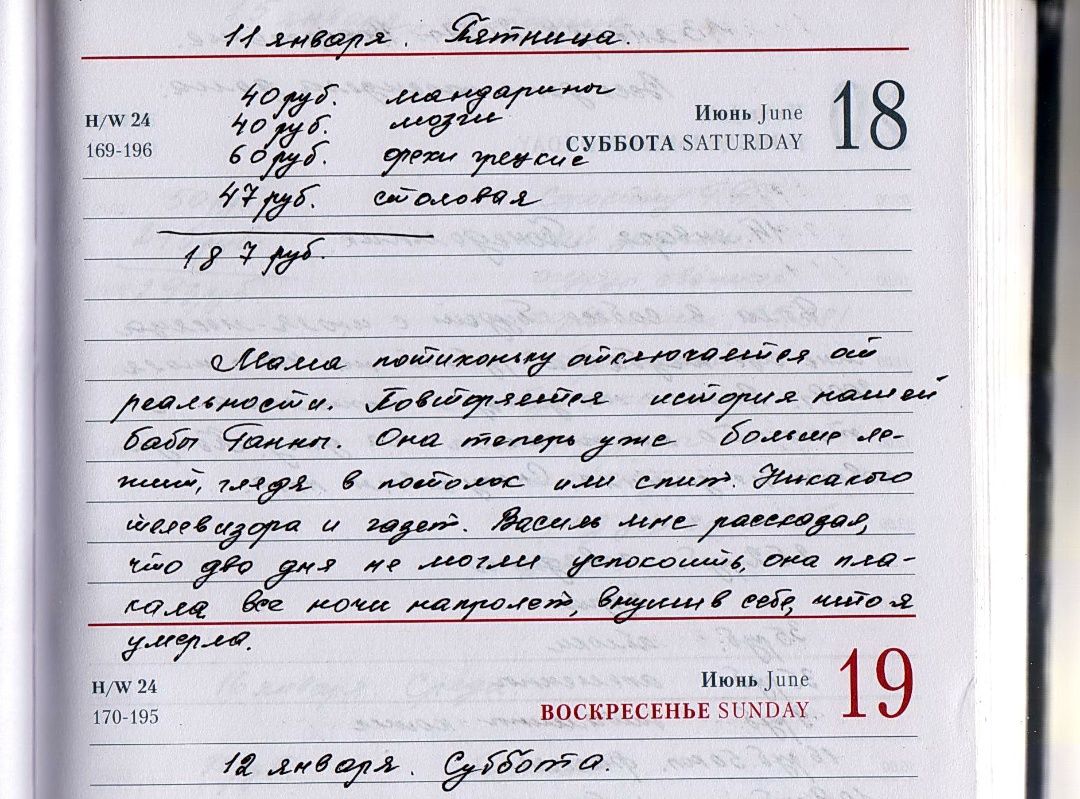 11 января. Пятница.
40 руб. мандарины
Июнь June
18
H/W 24
40 руб. мозги
СУББОТА SATURDAY
169-196
60 руб. орехи грецкие
47 руб. столовая
187 руб.
Мама потихоньку отключается от
реальности. Повторяется история нашей
бабы Ганны. Она теперь уже больше ле-
жит, глядя в потолок или спит. Никакого
телевизора и газет. Василь мне рассказал,
что два дня не могли успокоить, она пла-
кала все ночи напролет, внушив себе, что я
умерла.
H/W 24
Июнь June
19
170-195
ВОСКРЕСЕНЬЕ SUNDAY
12 января. Суббота.